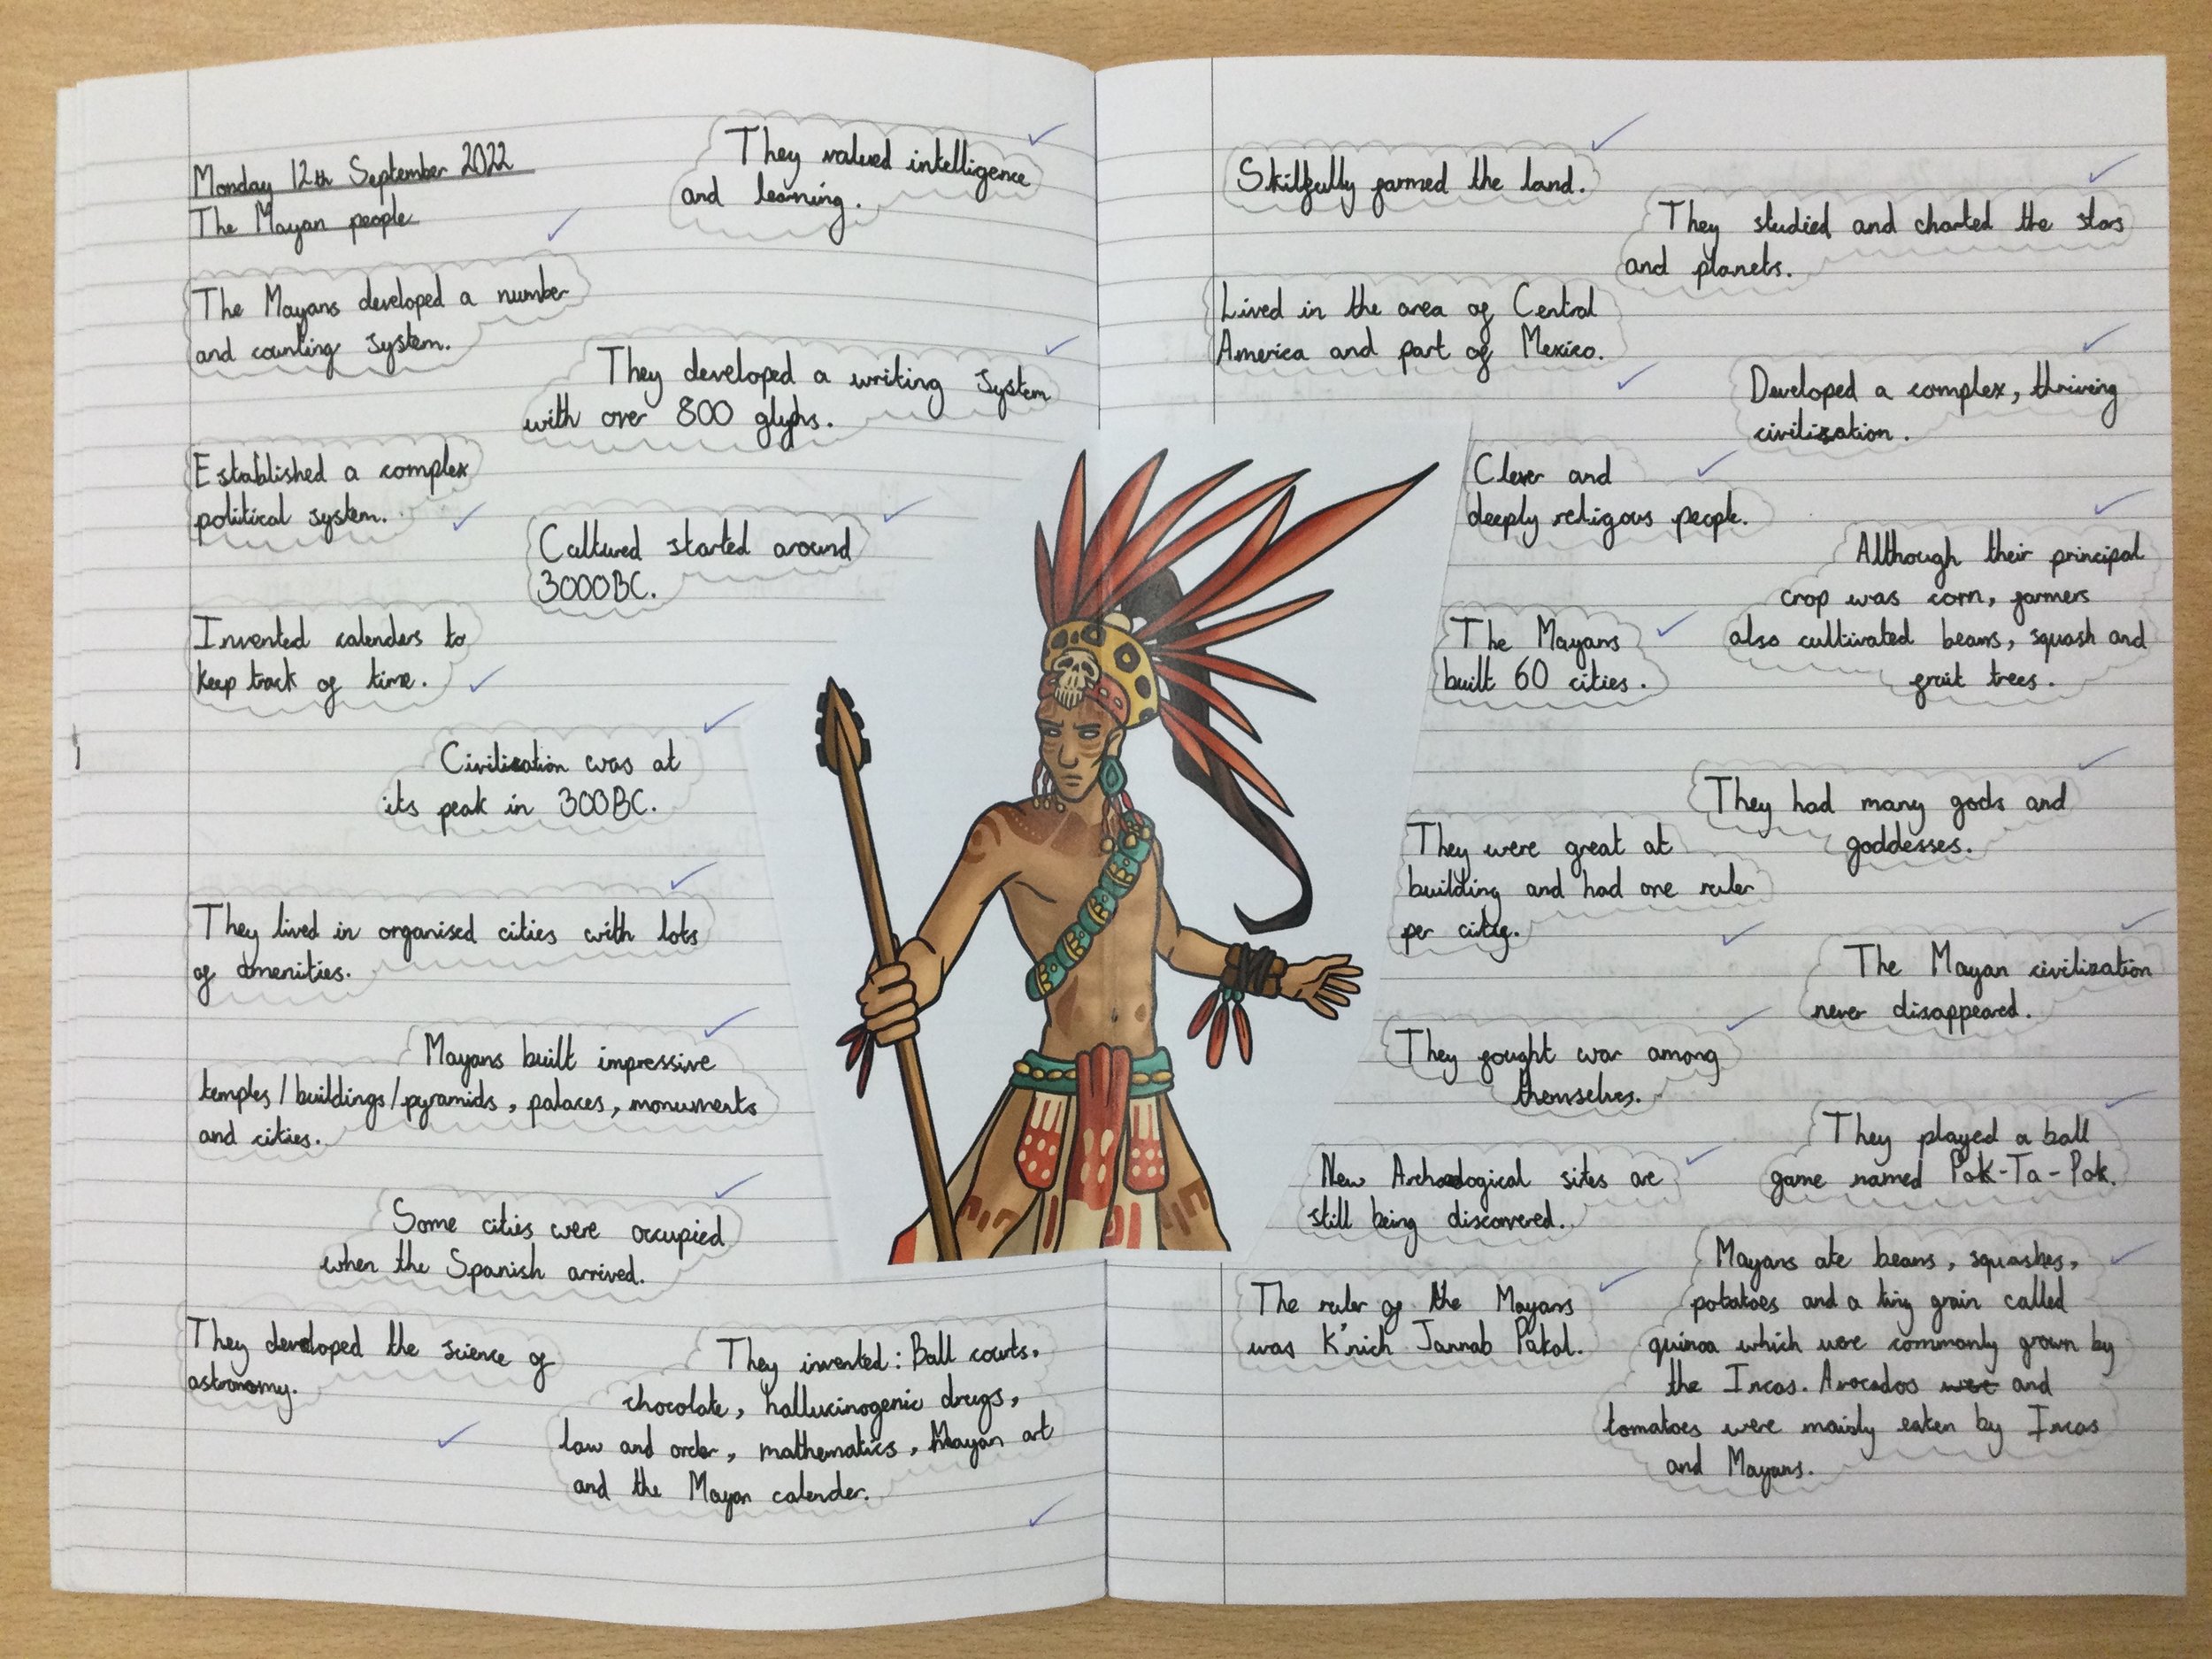 Monday 12th September 2022
The Mayan people
They valued intelligence
and learning.
The Mayans developed a number
and counting system.
They developed a writing system
with over 800 glyhs.
Established a complex
political system.
Cultured started around
3000BC.
Invented calenders to
keep track of time.
Civilisation was at
its peak in 300BC.
They lived in organised cities with lots
of amenities.
Mayans built impressive
temples/buildings/pyramids, palaces, monuments
and cities.
Some cities were occupied
when the Spanish arrived.
They developed the science of
astronomy.
They invented: Ball courts,
chocolate, hallucinogenic drugs,
law and order, mathematics, Mayan art
and the Mayan calender.
Skilfully farmed the land.
They studied and charted the stars
and planets.
Lived in the area of Central
America and part of Mexico.
Developed a complex, thriving
civilisation.
Clever and
deeply religous people.
Although their principal
crop was corn, farmers
also cultivated beans, squash and
fruit trees.
The Mayans
built 60 cities.
They had many gods and
goddesses.
They were great at
building and had one ruler
per city.
The Mayan civilization
never disappeared.
They fought war among
themselves.
They played a ball
game named Pok-Ta-Pok.
New Archaeological sites are
still being discovered.
The ruler of the Mayans
was K'nich Jannab Pakal.
Mayans ate beans, squashes,
potatoes and a tiny grain called
quinoa which were commonly grown by
the Incas. Avocados were and
tomatoes were mainly eaten by Incas
and Mayans.